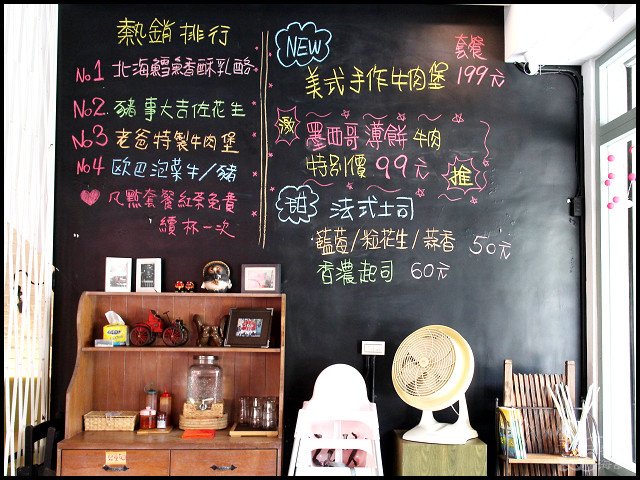 熱銷排行
No1 北海鱈魚香酥乳酪
No2 豬事大吉佐花生
No3 老爸特製牛肉堡
No4 歐巴泡菜牛/豬
凡點套餐紅茶免費
續杯一次
NEW
套餐
美式手作牛肉堡 199元
激
墨西哥薄餅 牛肉
特別價 99元
推
甜 法式土司
藍莓/粒花生/蒜香 50元
香濃起司 60元